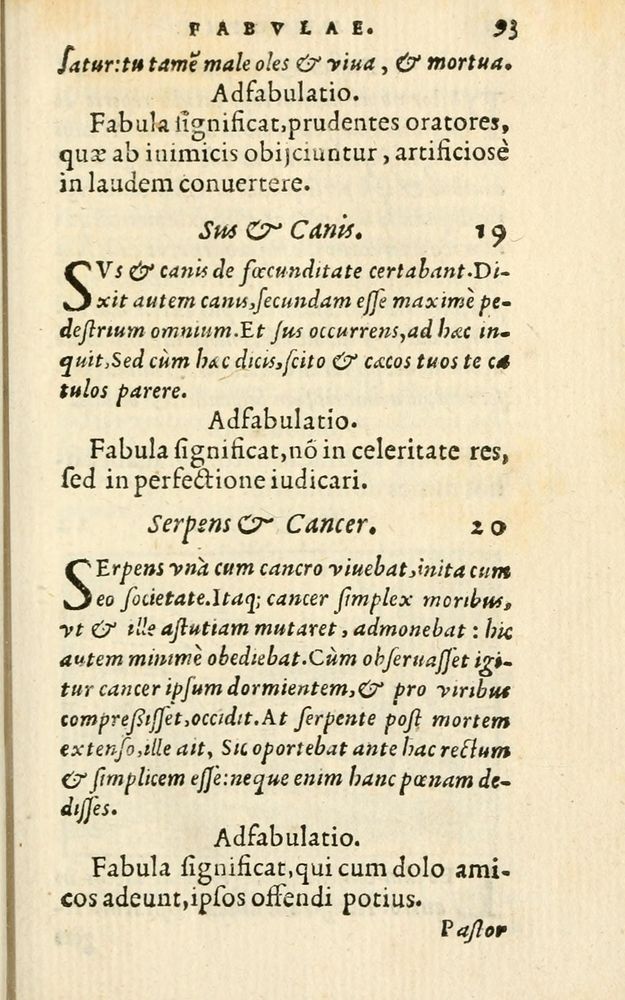 FABVLAE. 93
ſatur:tu tamẽ male oles & viua, & mortua.
Adfabulatio.
Fabula ſignificat,prudentes oratores,
quæ ab inimicis obijciuntur, artificiosè
in laudem conuertere.
Sus & Canis. 19
SVs & canis de fœcunditate certabant.Di-
xit autem canis,ſecundam eſſe maximè pe-
deſtrium omnium.Et ſus occurrens,ad hæc in-
quit,Sed cùm hæc dicis,ſcito & cæcos tuos te ca
tulos parere.
Adfabulatio.
Fabula ſignificat,nõ in celeritate res,
ſed in perfectione iudicari.
Serpens & Cancer. 20
SErpens vnà cum cancro viuebat,inita cum
eo ſocietate.Itaq; cancer ſimplex moribus,
vt & ille aſtutiam mutaret, admonebat : hic
autem minimè obediebat.Cùm obſeruaſſet igi-
tur cancer ipſum dormientem,& pro viribus
compreßiſſet,occidit.At ſerpente poſt mortem
extenſo,ille ait, Sic oportebat ante hac rectum
& ſimplicem eſſe:neque enim hanc pœnam de-
diſſes.
Adfabulatio.
Fabula ſignificat,qui cum dolo ami-
cos adeunt,ipſos offendi potius.
Paſtor